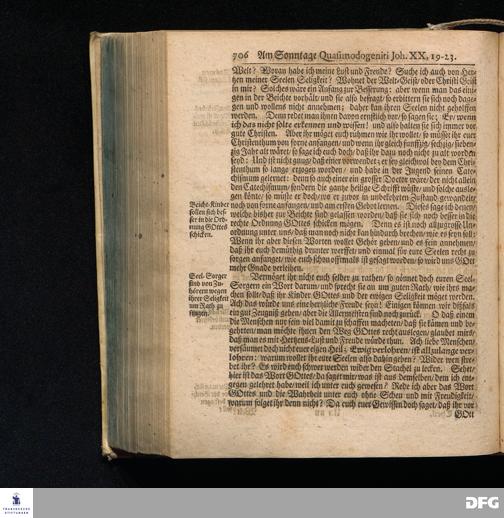 706 Am Sonntage Quasimodogeniti Joh. XX, 19-23.
Welt? Woran habe ich meine Lust und Freude? Suche ich auch von Her-
tzen meiner Seelen Seligkeit? Wohnet der Welt-Geist oder Christi Geist
in mir? Solches wäre ein Anfang zur Besserung: aber wenn man das eini-
gen in der Beichte vorhält, und sie also befragt, so erbittern sie sich noch dage-
gen und wollens nicht annehmen; daher kan ihren Seelen nicht geholffen
werden. Denn redet man ihnen davon ernstlich vor, so sagen sie: Ey, wenn
ich das nicht solte erkennen und wissen! und also halten sie sich immer vor
gute Christen. Aber ihr möget euch rühmen wie ihr wollet, so müsset ihr eurer
Christenthum von forne anfangen, und wenn ihr gleich funffzig, sechzig, sieben-
zig Jahr alt wäret; so sage ich euch doch, daß ihr dazu noch nicht zu alt worden
seyd: Und ist nicht gnug, daß einer vorwendet; er sey gleichwol bey dem Chri-
stenthum so lange erzogen worden, und habe in der Jugend seinen Cate-
chismum gelernet: denn so auch einer ein grosser Doctor wäre, der nicht allein
den Catechismum, sondern die gantze heilige Schrifft wüste, und solche ausle-
gen könte, so müste er doch, wo er zuvor in unbekehrten Zustand gewandelt,
noch von forne anfangen, und am ersten Gebot lernen. Dieses sage ich denen,
welche bisher zur Beichte sind gelassen worden, daß sie sich noch besser in die
rechte Ordnung GOttes schicken mögen. Denn es ist noch allzugrosse Un-
ordnung unter uns, daß man noch nicht kan hindurch brechen, wie es seyn soll:
Wenn ihr aber diesen Worten wollet Gehör geben, und es fein annehmen,
daß ihr euch demüthig drunter werffet, und einmal für eure Seelen recht zu
sorgen anfanget, wie euch schon offtmals ist gesagt worden, so wird uns GOtt
mehr Gnade verleihen.
Beicht-Kinder
sollen sich bes-
ser in die Ord-
nung GOttes
schicken.
Vermöget ihr nicht euch selber zu rathen, so gönnet doch euren Seel-
Sorgern ein Wort darum, und sprecht sie an um guten Rath, wie ihrs ma-
chen sollt, daß ihr Kinder GOttes und der ewigen Seligkeit möget werden.
Ach das würde uns eine hertzliche Freude seyn! Einigen können wir dißfalls
ein gut Zeugniß geben, aber die Allermeisten sind noch zurück. O daß einem
die Menschen nur fein viel damit zu schaffen machten, daß sie kämen und be-
gehrten, man möchte ihnen den Weg GOttes recht auslegen, glaubet mirs,
daß man es mit Hertzens-Lust und Freude würde thun. Ach liebe Menschen,
versäumet doch nicht euer eigen Heil; Ewig verlohren, ist allzulange ver-
lohren: warum wollet ihr eure Seelen also dahin geben? Wider wen stre-
bet ihr? Es wird euch schwer werden wider den Stachel zu lecken. Sehet,
hier ist das Wort GOttes, da saget mir, was ist aus demselben, dem ich ent-
gegen gelehret habe, weil ich unter euch gewesen? Rede ich aber das Wort
GOttes und die Wahrheit unter euch ohne Scheu und mit Freudigkeit,
warum folget ihr denn nicht? Da euch euer Gewissen doch saget, daß ihr vor
GOtt
Seel-Sorger
sind von Zu-
hörern wegen
ihrer Seligkeit
um Rath zu
fragen.
FRANCKESCHE
STIFTUNGEN
DFG